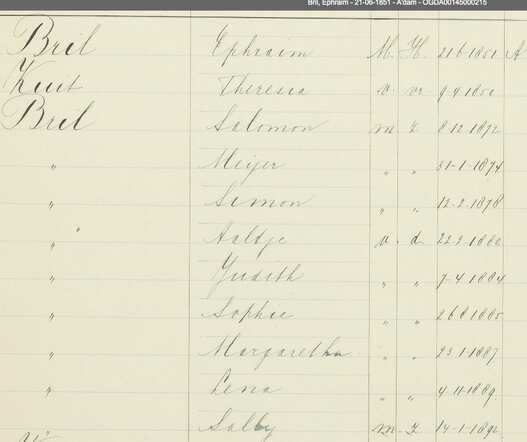 Bril, Ephraim - 21-06-1851 - A'dam - OGDA00145000215
Bril Ephraim M. H. 21-6-1851 A
Kuit Theresia v. vr 9-4-1850
Bril Salomon m z 8-12-1872
" Meijer " " 31-1-1874
" Simon " " 12-2-1878
" Aaltje v. d. 22-2-1880
" Judith " " 7-4-1884
" Sophie " " 26-8-1885
" Margaretha " " 23-1-1887
" Lena " " 4-11-1889
Sally m z 14-1-1892